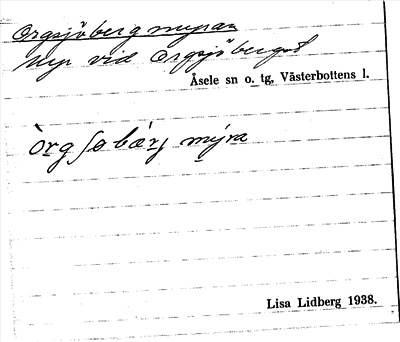 Orgsjöbergmyran
myr vid Orgsjöberget
Åsele sn o. tg, Västerbottens l.
òrgʃøbærj mýra
Lisa Lidberg 1938.